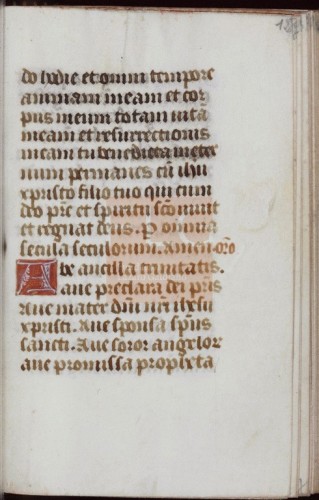 do hodie et omni tempore
animam meam et cor
pus meum totam vitā
meam et resurrectionis
meam tu benedicta in eter
num permanes cū ihū
xpristo filio tuo qui cum
deo pr̄e et spiritu sc̄o vivit
et regnat deus. P omnia
secula seculorum. Amen. or̄o
Ave ancilla trinitatis.
ave preclara dei pr̄is
Ave mater dn̄i nr̄i ihesu
xpristi. Ave sponsa sp̄us
sancti. Ave soror angelor
ave promissa propheta